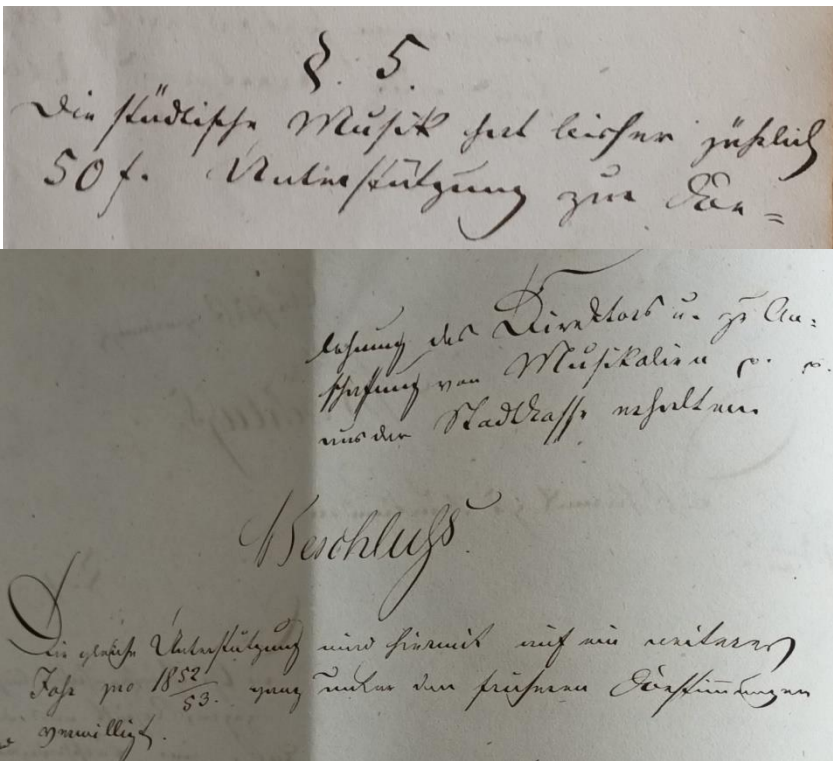 §. 5.
Die städtische Musik hat bisher jährlich
50 f. Unterstützung zur Be=
lohnung des Direktors u. zu An=
schaffung von Musikalien p. p.
aus der Stadtkasse erhalten.
Beschluss.
Die gleiche Unterstützung wird hiermit auf ein weiteres
Jahr pro 1852/53. ganz unter den früheren Bestimmungen
verwilligt.